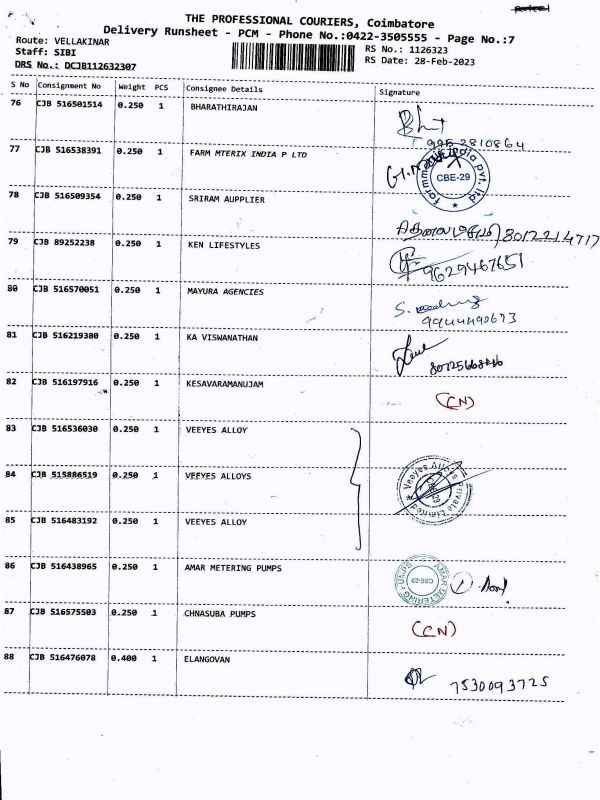 THE PROFESSIONAL COURIERS, Coimbatore
Delivery Runsheet - PCM - Phone No.:0422-3505555 - Page No.:7
Route: VELLAKINAR
RS No.: 1126323
Staff: SIBI
RS Date: 28-Feb-2023
DRS No.: DCJB112632307
S No Consignment No Weight PCS Consignee Details Signature
76 CJB 516501514 0.250 1 BHARATHIRAJAN
77 CJB 516538391 0.250 1 FARM MTERIX INDIA P LTD
CBE-29
78 CJB 516509354 0.250 1 SRIRAM AUPPLIER 8012214717
79 CJB 89252238 0.250 1 KEN LIFESTYLES 9629467651
80 CJB 516570051 0.250 1 MAYURA AGENCIES
9944490673
81 CJB 516219380 0.250 1 KA VISWANATHAN
82 CJB 516197916 0.250 1 KESAVARAMANUJAM (CN)
83 CJB 516536030 0.250 1 VEEYES ALLOY
84 CJB 515886519 0.250 1 VEEYES ALLOYS
Veeyes Alloys Private Limited
85 CJB 516483192 0.250 1 VEEYES ALLOY
86 CJB 516438965 0.250 1 AMAR METERING PUMPS
AMAR METERING PUMPS
87 CJB 516575503 0.250 1 CHNASUBA PUMPS (CN)
88 CJB 516476078 0.400 1 ELANGOVAN 7530093725